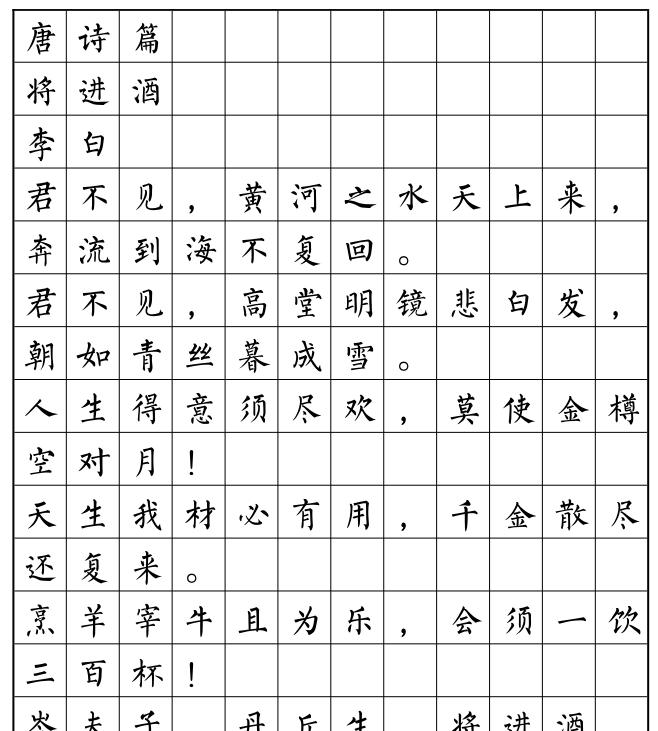 唐诗篇
将进酒
李白
君不见，黄河之水天上来，
奔流到海不复回。
君不见，高堂明镜悲白发，
朝如青丝暮成雪。
人生得意须尽欢，莫使金樽
空对月！
天生我材必有用，千金散尽
还复来。
烹羊宰牛且为乐，会须一饮
三百杯！
岑夫子 丹丘生 将进酒